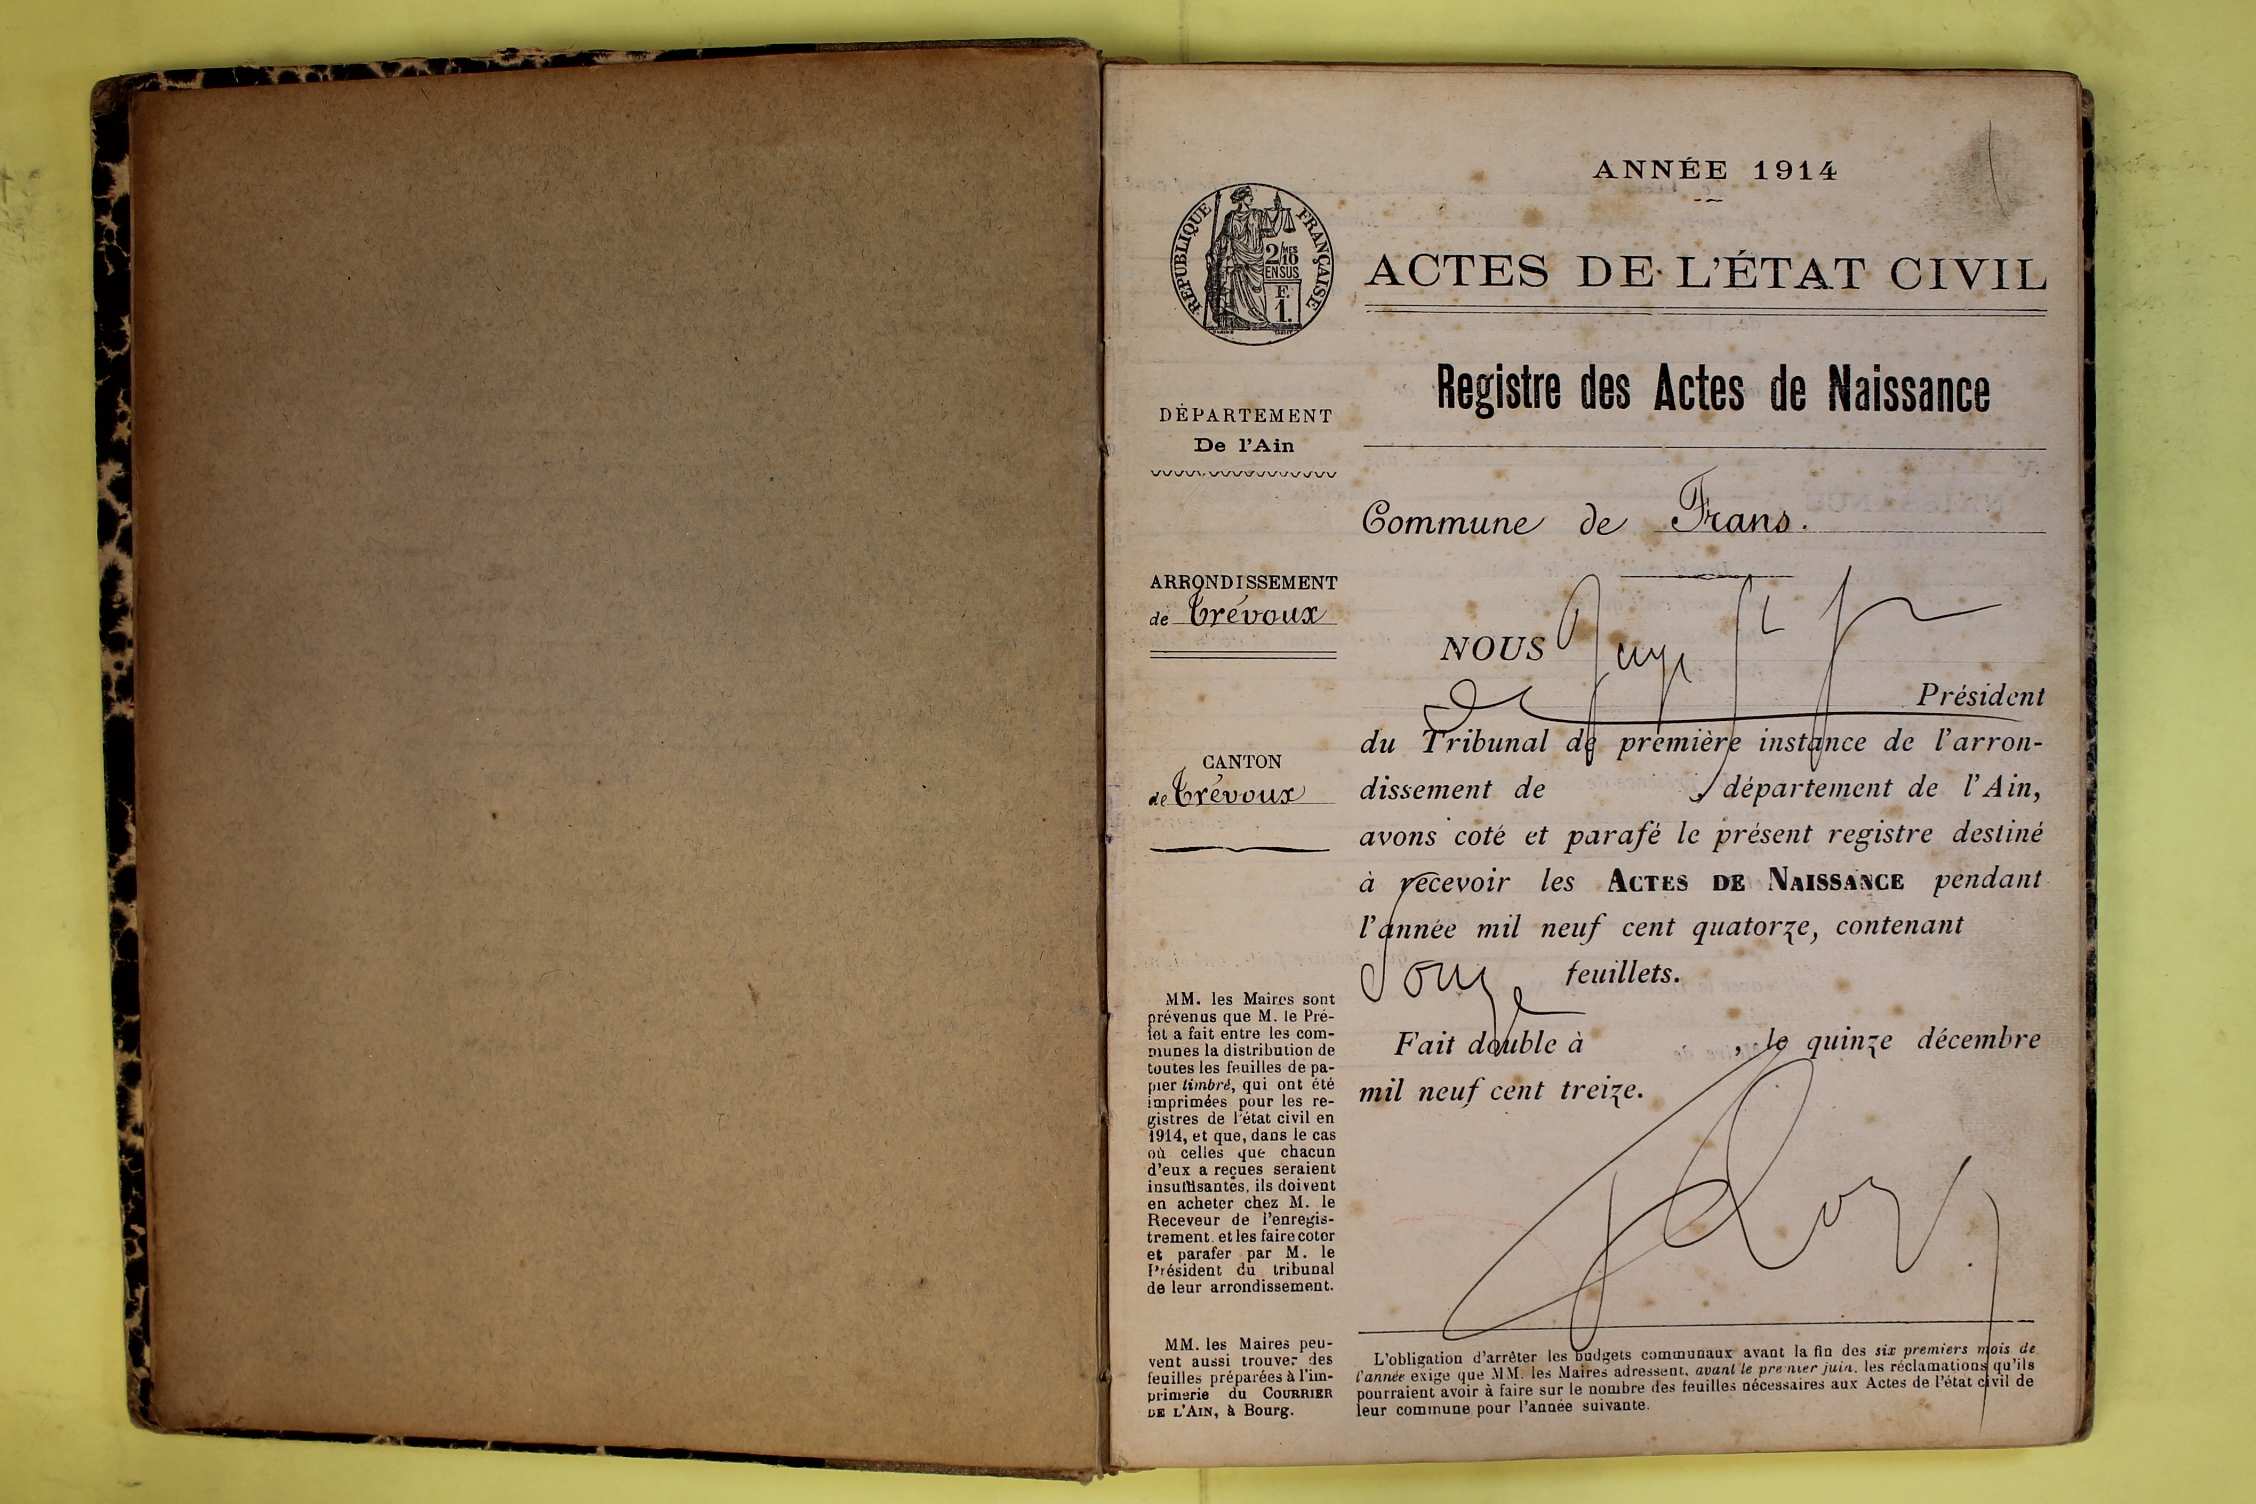 ANNÉE 1914
RÉPUBLIQUE FRANÇAISE
2/MES
10
EN SUS
F.
1.
ACTES DE L'ÉTAT CIVIL
Registre des Actes de Naissance
DÉPARTEMENT
De l'Ain
Commune de Frans.
ARRONDISSEMENT
de Trévoux
NOUS Juge
Président
du Tribunal de première instance de l'arron-
dissement de , département de l'Ain,
CANTON
de Trévoux
avons coté et parafé le présent registre destiné
à recevoir les ACTES DE NAISSANCE pendant
l'année mil neuf cent quatorze, contenant
Douze feuillets.
Fait double à , le quinze décembre
mil neuf cent treize.
MM. les Maires sont
prévenus que M. le Pré-
fet a fait entre les com-
munes la distribution de
toutes les feuilles de pa-
pier timbré, qui ont été
imprimées pour les re-
gistres de l'état civil en
1914, et que, dans le cas
où celles que chacun
d'eux a reçues seraient
insuffisantes, ils doivent
en acheter chez M. le
Receveur de l'enregis-
trement. et les faire coter
et parafer par M. le
Président du tribunal
de leur arrondissement.
MM. les Maires peu-
vent aussi trouver des
feuilles préparées à l'im-
primerie du COURRIER
DE L'AIN, à Bourg.
L'obligation d'arrêter les budgets communaux avant la fin des six premiers mois de
l'année exige que MM. les Maires adressent, avant le premier juin, les réclamations qu'ils
pourraient avoir à faire sur le nombre des feuilles nécessaires aux Actes de l'état civil de
leur commune pour l'année suivante.